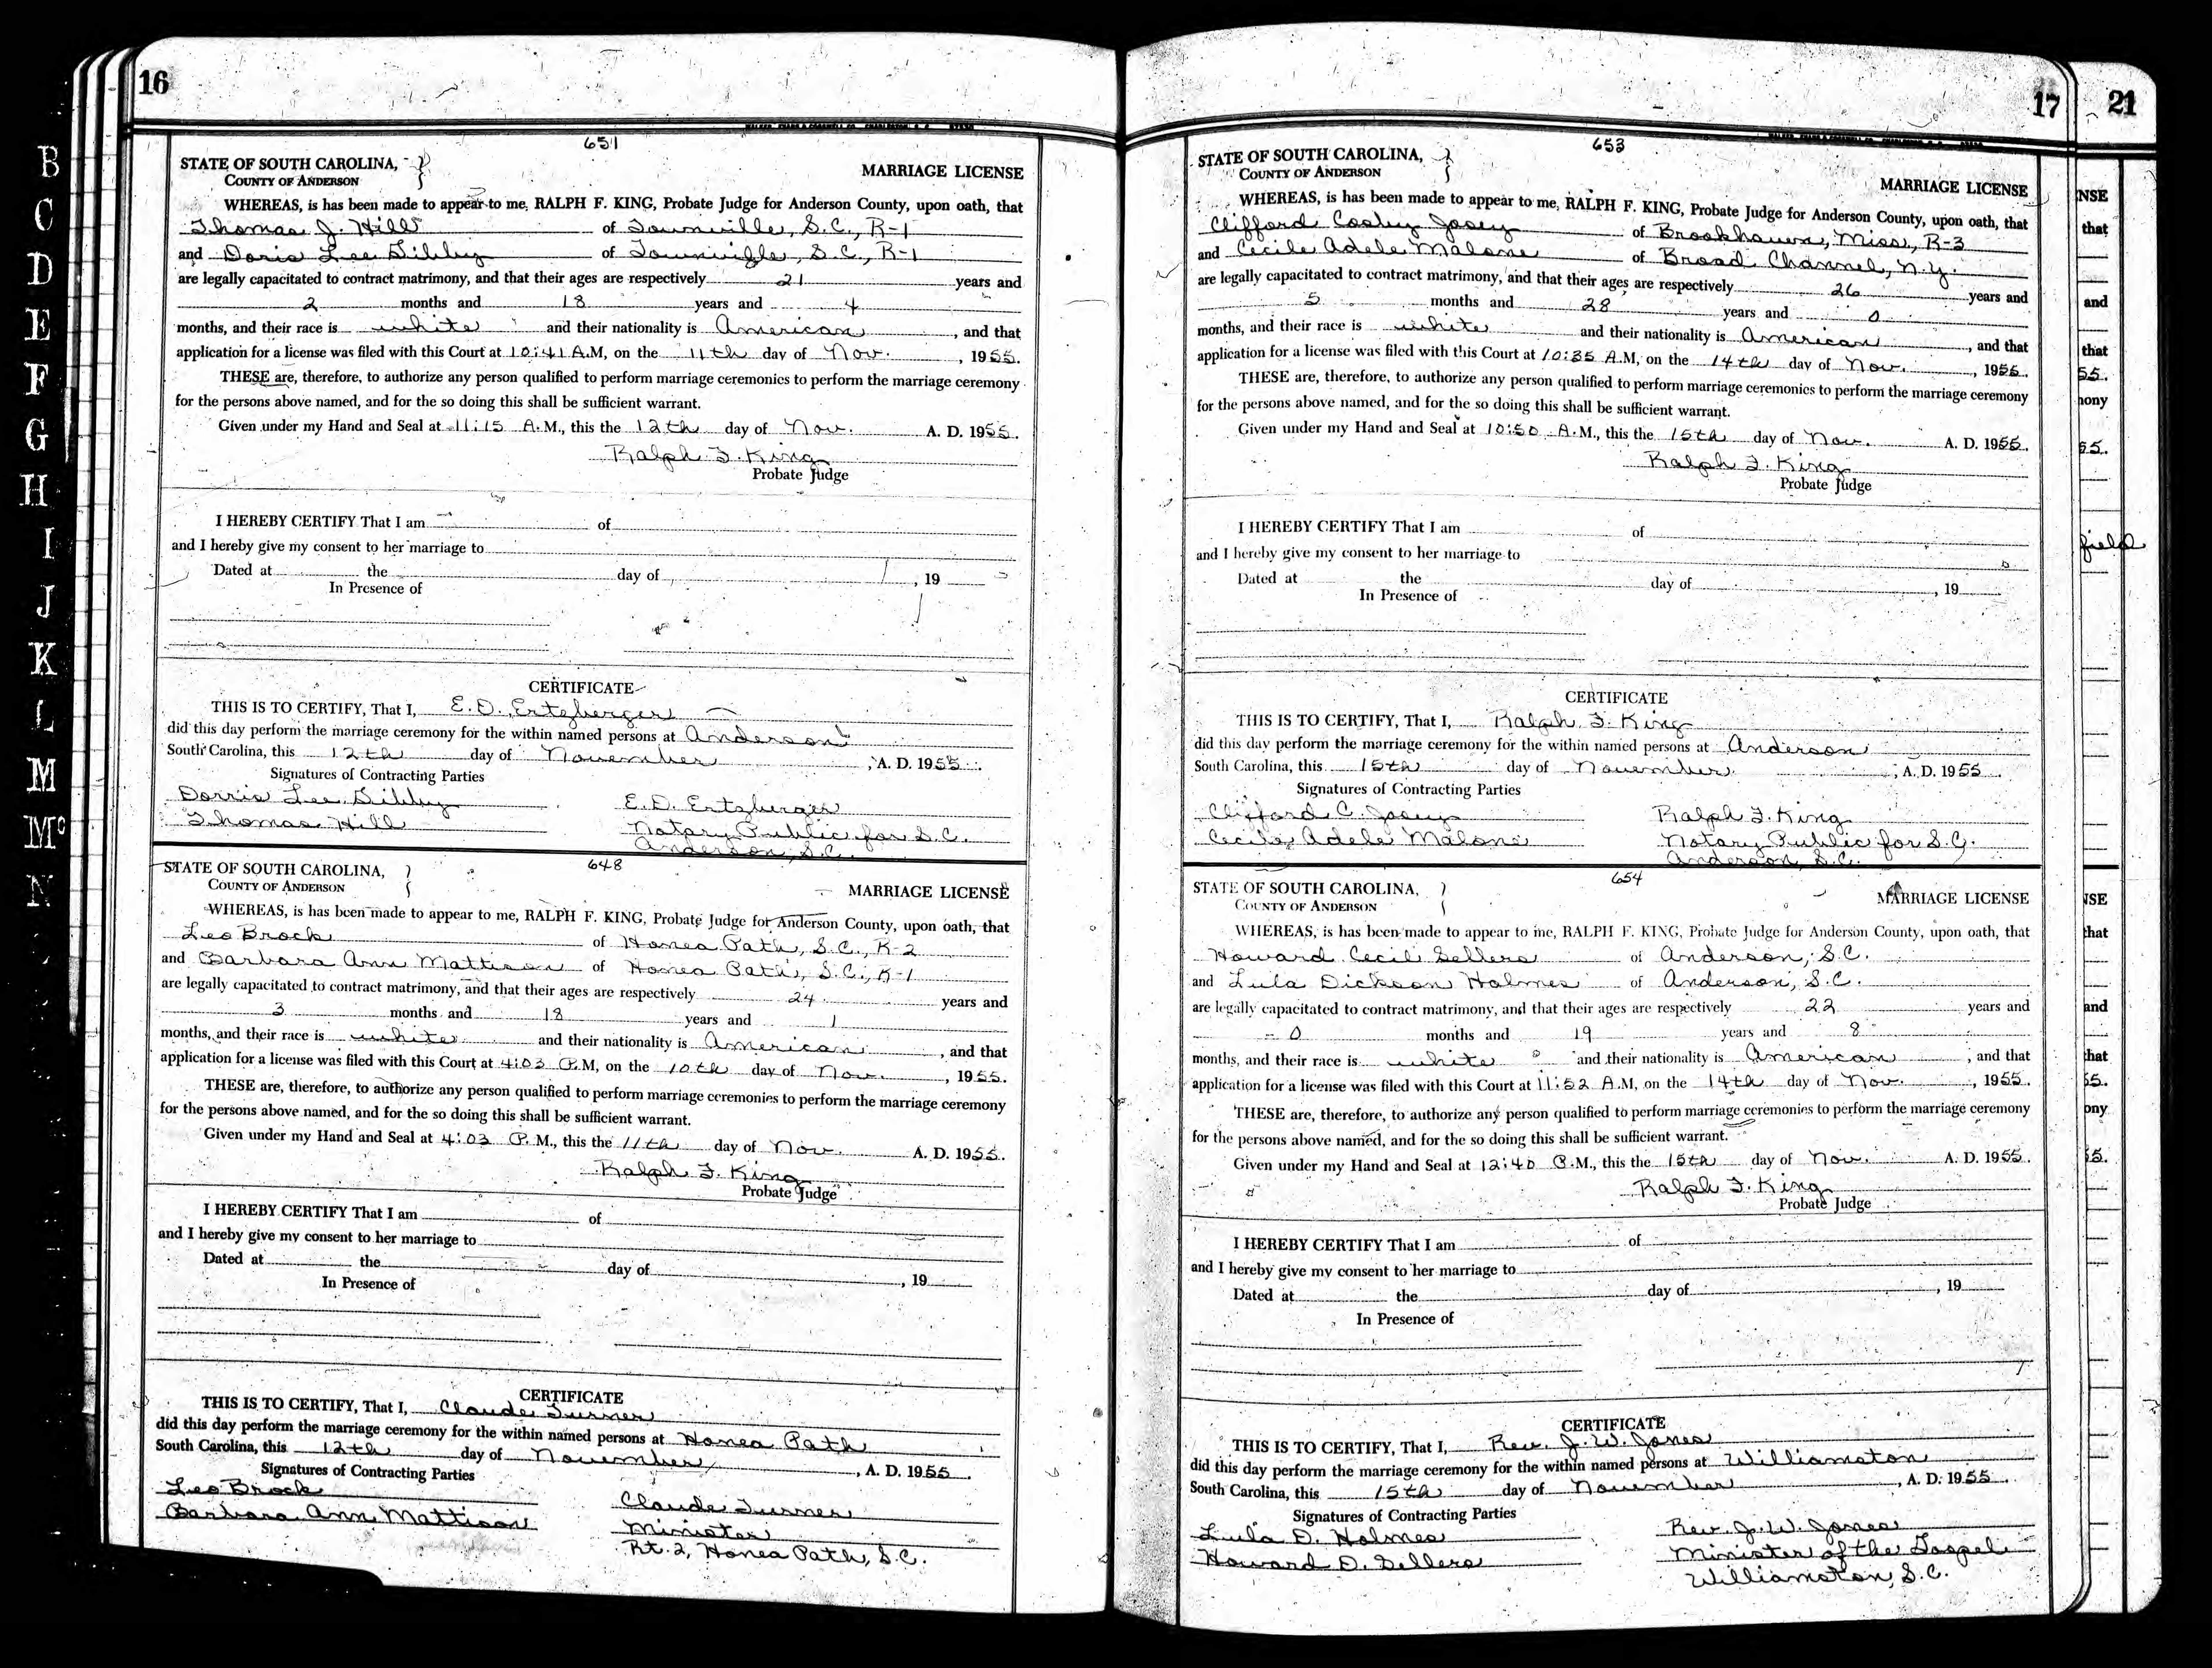 16
651
STATE OF SOUTH CAROLINA,
COUNTY OF ANDERSON
MARRIAGE LICENSE
WHEREAS, is has been made to appear to me, RALPH F. KING, Probate Judge for Anderson County, upon oath, that
Thomas J. Hill of Townville, S.C., R-1
and Doris Lee Dibby of Townville, S.C., R-1
are legally capacitated to contract matrimony, and that their ages are respectively 21 years and
2 months and 18 years and 4
months, and their race is white and their nationality is American, and that
application for a license was filed with this Court at 10:41 A.M, on the 11th day of Nov., 1955.
THESE are, therefore, to authorize any person qualified to perform marriage ceremonies to perform the marriage ceremony
for the persons above named, and for the so doing this shall be sufficient warrant.
Given under my Hand and Seal at 11:15 A.M., this the 12th day of Nov. A. D. 1955.
Ralph F. King
Probate Judge
I HEREBY CERTIFY That I am of
and I hereby give my consent to her marriage to
Dated at the day of , 19
In Presence of
CERTIFICATE
THIS IS TO CERTIFY, That I, E. D. Ertzberger
did this day perform the marriage ceremony for the within named persons at Anderson
South Carolina, this 12th day of November, A. D. 1955.
Signatures of Contracting Parties
Dorris Lee Dibby
Thomas Hill
E. D. Ertzberger
Notary Public for S.C.
Anderson, S.C.
648
STATE OF SOUTH CAROLINA,
COUNTY OF ANDERSON
MARRIAGE LICENSE
WHEREAS, is has been made to appear to me, RALPH F. KING, Probate Judge for Anderson County, upon oath, that
Leo Brock of Honea Path, S.C., R-2
and Barbara Ann Mattison of Honea Path, S.C., R-1
are legally capacitated to contract matrimony, and that their ages are respectively 24 years and
3 months and 18 years and 1
months, and their race is white and their nationality is American, and that
application for a license was filed with this Court at 4:03 P.M, on the 10th day of Nov., 1955.
THESE are, therefore, to authorize any person qualified to perform marriage ceremonies to perform the marriage ceremony
for the persons above named, and for the so doing this shall be sufficient warrant.
Given under my Hand and Seal at 4:03 P.M., this the 11th day of Nov. A. D. 1955.
Ralph F. King
Probate Judge
I HEREBY CERTIFY That I am of
and I hereby give my consent to her marriage to
Dated at the day of , 19
In Presence of
CERTIFICATE
THIS IS TO CERTIFY, That I, Claude Turner
did this day perform the marriage ceremony for the within named persons at Honea Path
South Carolina, this 12th day of November, A. D. 1955.
Signatures of Contracting Parties
Leo Brock
Barbara Ann Mattison
Claude Turner
Minister
Rt. 2, Honea Path, S.C.
17
653
STATE OF SOUTH CAROLINA,
COUNTY OF ANDERSON
MARRIAGE LICENSE
WHEREAS, is has been made to appear to me, RALPH F. KING, Probate Judge for Anderson County, upon oath, that
Clifford Cosby Josey of Brookhaven, Miss., R-3
and Cecile Adele Malone of Broad Channel, N.Y.
are legally capacitated to contract matrimony, and that their ages are respectively 26 years and
5 months and 28 years and 0
months, and their race is white and their nationality is American, and that
application for a license was filed with this Court at 10:35 A.M, on the 14th day of Nov., 1955.
THESE are, therefore, to authorize any person qualified to perform marriage ceremonies to perform the marriage ceremony
for the persons above named, and for the so doing this shall be sufficient warrant.
Given under my Hand and Seal at 10:50 A.M., this the 15th day of Nov. A. D. 1955.
Ralph F. King
Probate Judge
I HEREBY CERTIFY That I am of
and I hereby give my consent to her marriage to
Dated at the day of , 19
In Presence of
CERTIFICATE
THIS IS TO CERTIFY, That I, Ralph F. King
did this day perform the marriage ceremony for the within named persons at Anderson
South Carolina, this 15th day of November, A. D. 1955.
Signatures of Contracting Parties
Clifford C. Josey
Cecile Adele Malone
Ralph F. King
Notary Public for S.C.
Anderson, S.C.
654
STATE OF SOUTH CAROLINA,
COUNTY OF ANDERSON
MARRIAGE LICENSE
WHEREAS, is has been made to appear to me, RALPH F. KING, Probate Judge for Anderson County, upon oath, that
Howard Cecil Sellers of Anderson, S.C.
and Lula Dickson Holmes of Anderson, S.C.
are legally capacitated to contract matrimony, and that their ages are respectively 22 years and
0 months and 19 years and 8
months, and their race is white and their nationality is American, and that
application for a license was filed with this Court at 11:52 A.M, on the 14th day of Nov., 1955.
THESE are, therefore, to authorize any person qualified to perform marriage ceremonies to perform the marriage ceremony
for the persons above named, and for the so doing this shall be sufficient warrant.
Given under my Hand and Seal at 12:40 P.M., this the 15th day of Nov. A. D. 1955.
Ralph F. King
Probate Judge
I HEREBY CERTIFY That I am of
and I hereby give my consent to her marriage to
Dated at the day of , 19
In Presence of
CERTIFICATE
THIS IS TO CERTIFY, That I, Rev. J. W. Jones
did this day perform the marriage ceremony for the within named persons at Williamston
South Carolina, this 15th day of November, A. D. 1955.
Signatures of Contracting Parties
Lula D. Holmes
Howard D. Sellers
Rev. J. W. Jones
Minister of the Gospel
Williamston, S.C.
21
NSE
that
and
that
55.
nony
55.
field
NSE
that
and
that
55.
ony
55.
B
C
D
E
F
G
H
I
J
K
L
M
Mc
N